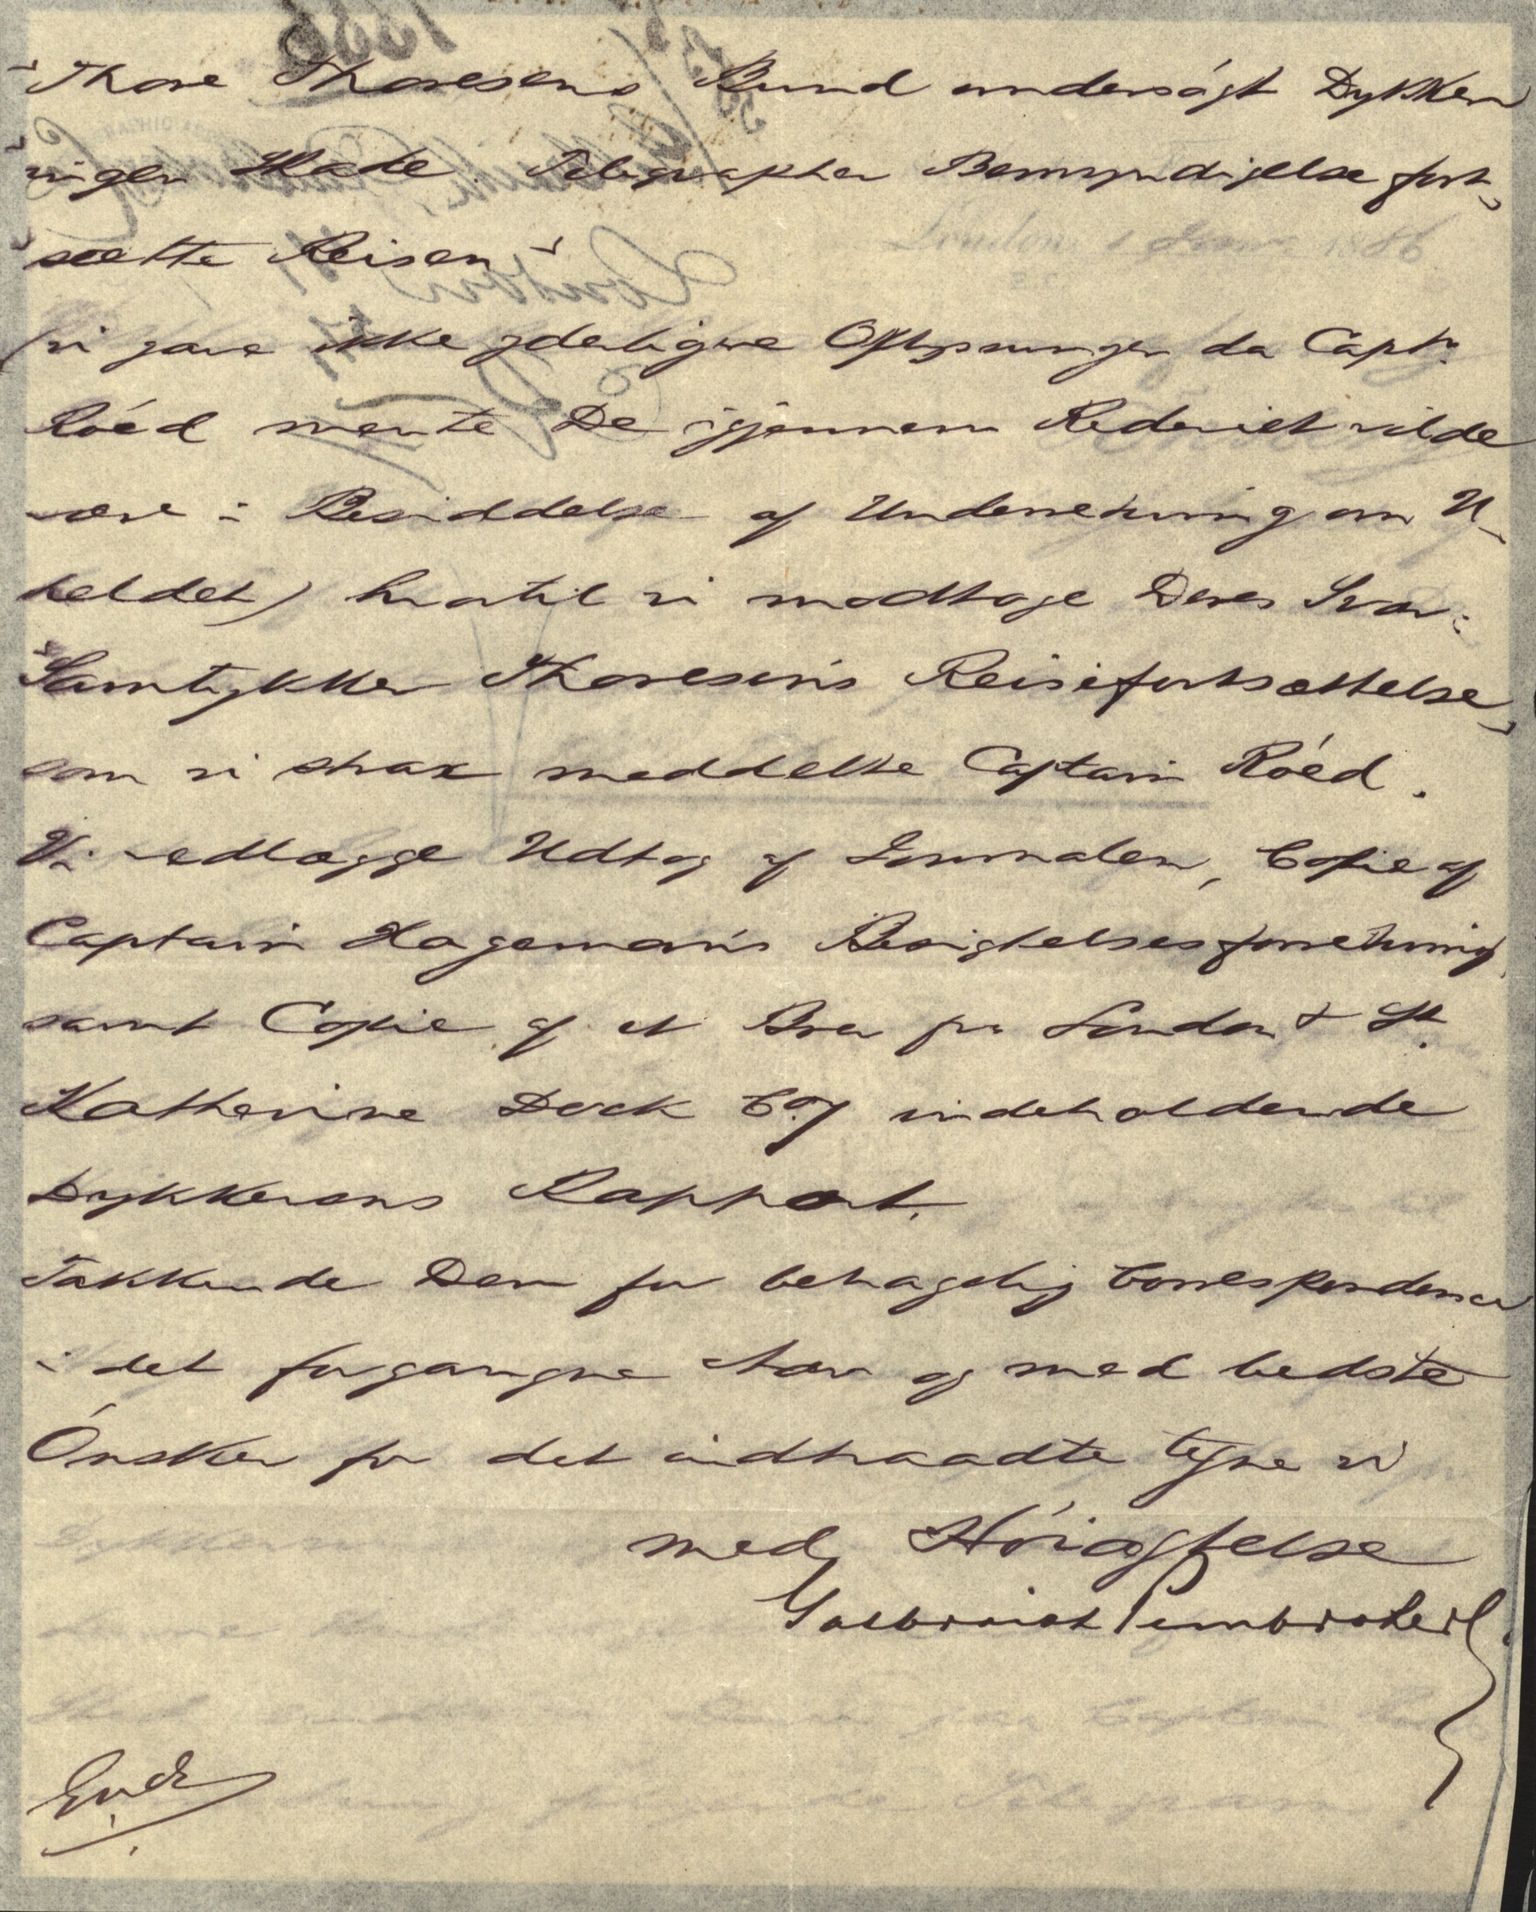 "Thore Thoresens Bund undersögt Dykker
ingen Skade. Telegrapher Bemyndigelse fort-
sætte Reisen"
(vi gave ikke yderligere Oplysninger da Captn
Röed mente De igjennem Rederiet vilde
være i Besiddelse af Underretning om U-
heldet) hvortil vi modtoge Deres Svar:
"Samtykker Thoresen's Reisefortsættelse"
som vi strax meddelte Captain Röed.
Vi vedlægge Udtog af Journalen, Copie af
Captain Hageman's Besigtelsesforretning
samt Copie af et Brev fra London & St.
Katherine Dock Coy indeholdende
Dykkerens Rapport.
Takkende Dem for behagelig Correspondence
i det forgangne Aar og med bedste
Önsker for det indtraadte tegne vi
med Höiagtelse
Galbraith Pembroke &C.
London, 1 1886
1886
London